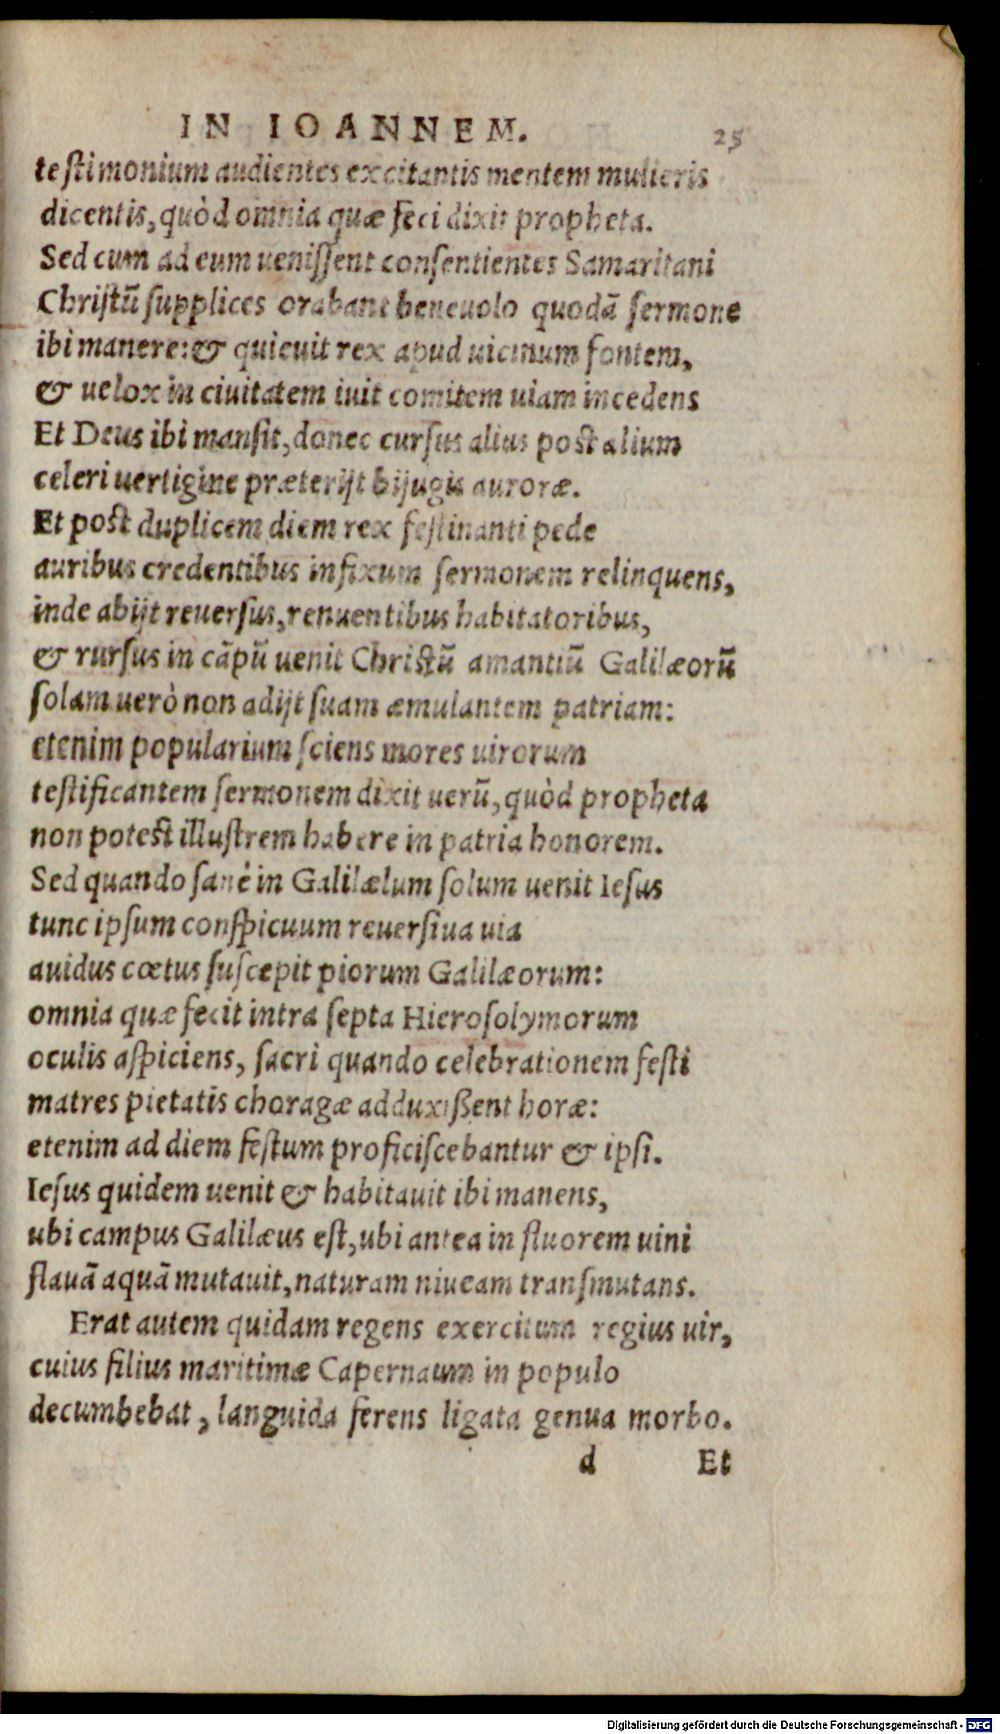 IN IOANNEM. 25
teſtimonium audientes excitantis mentem mulieris
dicentis, quòd omnia quæ feci dixit propheta.
Sed cum ad eum ueniſſent conſentientes Samaritani
Chriſtũ ſupplices orabant beneuolo quodã ſermone
ibi manere: & quieuit rex apud uicinum fontem,
& uelox in ciuitatem iuit comitem uiam incedens
Et Deus ibi manſit, donec curſus alius poſt alium
celeri uertigine præterijt bijugis auroræ.
Et poſt duplicem diem rex feſtinanti pede
auribus credentibus infixum ſermonem relinquens,
inde abijt reuerſus, renuentibus habitatoribus,
& rurſus in cãpũ uenit Chriſtũ amantiũ Galilæorũ
ſolam uerò non adijt ſuam æmulantem patriam:
etenim popularium ſciens mores uirorum
teſtificantem ſermonem dixit uerũ, quòd propheta
non poteſt illuſtrem habere in patria honorem.
Sed quando ſanè in Galilælum ſolum uenit Ieſus
tunc ipſum conſpicuum reuerſiua uia
auidus cœtus ſuſcepit piorum Galilæorum:
omnia quæ fecit intra ſepta Hieroſolymorum
oculis aſpiciens, ſacri quando celebrationem feſti
matres pietatis choragæ adduxiſſent horæ:
etenim ad diem feſtum proficiſcebantur & ipſi.
Ieſus quidem uenit & habitauit ibi manens,
ubi campus Galilæus eſt, ubi antea in fluorem uini
flauã aquã mutauit, naturam niueam tranſmutans.
Erat autem quidam regens exercitum regius uir,
cuius filius maritimæ Capernaum in populo
decumbebat, languida ferens ligata genua morbo.
d Et
Digitalisierung gefördert durch die Deutsche Forschungsgemeinschaft - DFG